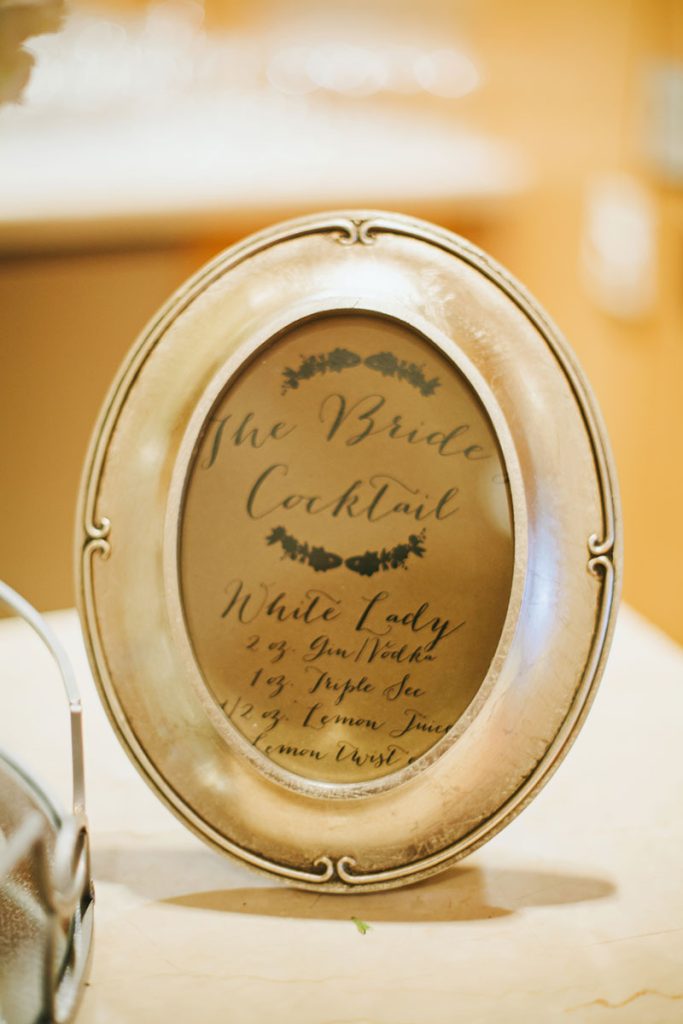 The Bride
Cocktail
White Lady
2 oz. Gin/Vodka
1 oz. Triple Sec
1/2 oz. Lemon Juice
Lemon Twist